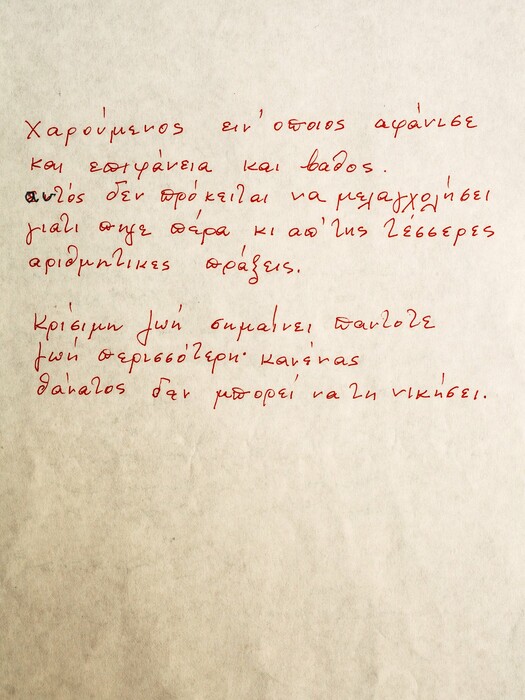 Χαρούμενος ειν' οποιος αφάνισε
και επιφάνεια και βαθος.
αυτός δεν πρόκειται να μελαγχολήσει
γιατι πηγε πέρα κι απ' της τέσσερες
αριθμητικες πράξεις.
Κρίσιμη ζωή σημαίνει παντοτε
ζωή περισσότερη· κανένας
θάνατος δεν μπορεί να τη νικήσει.